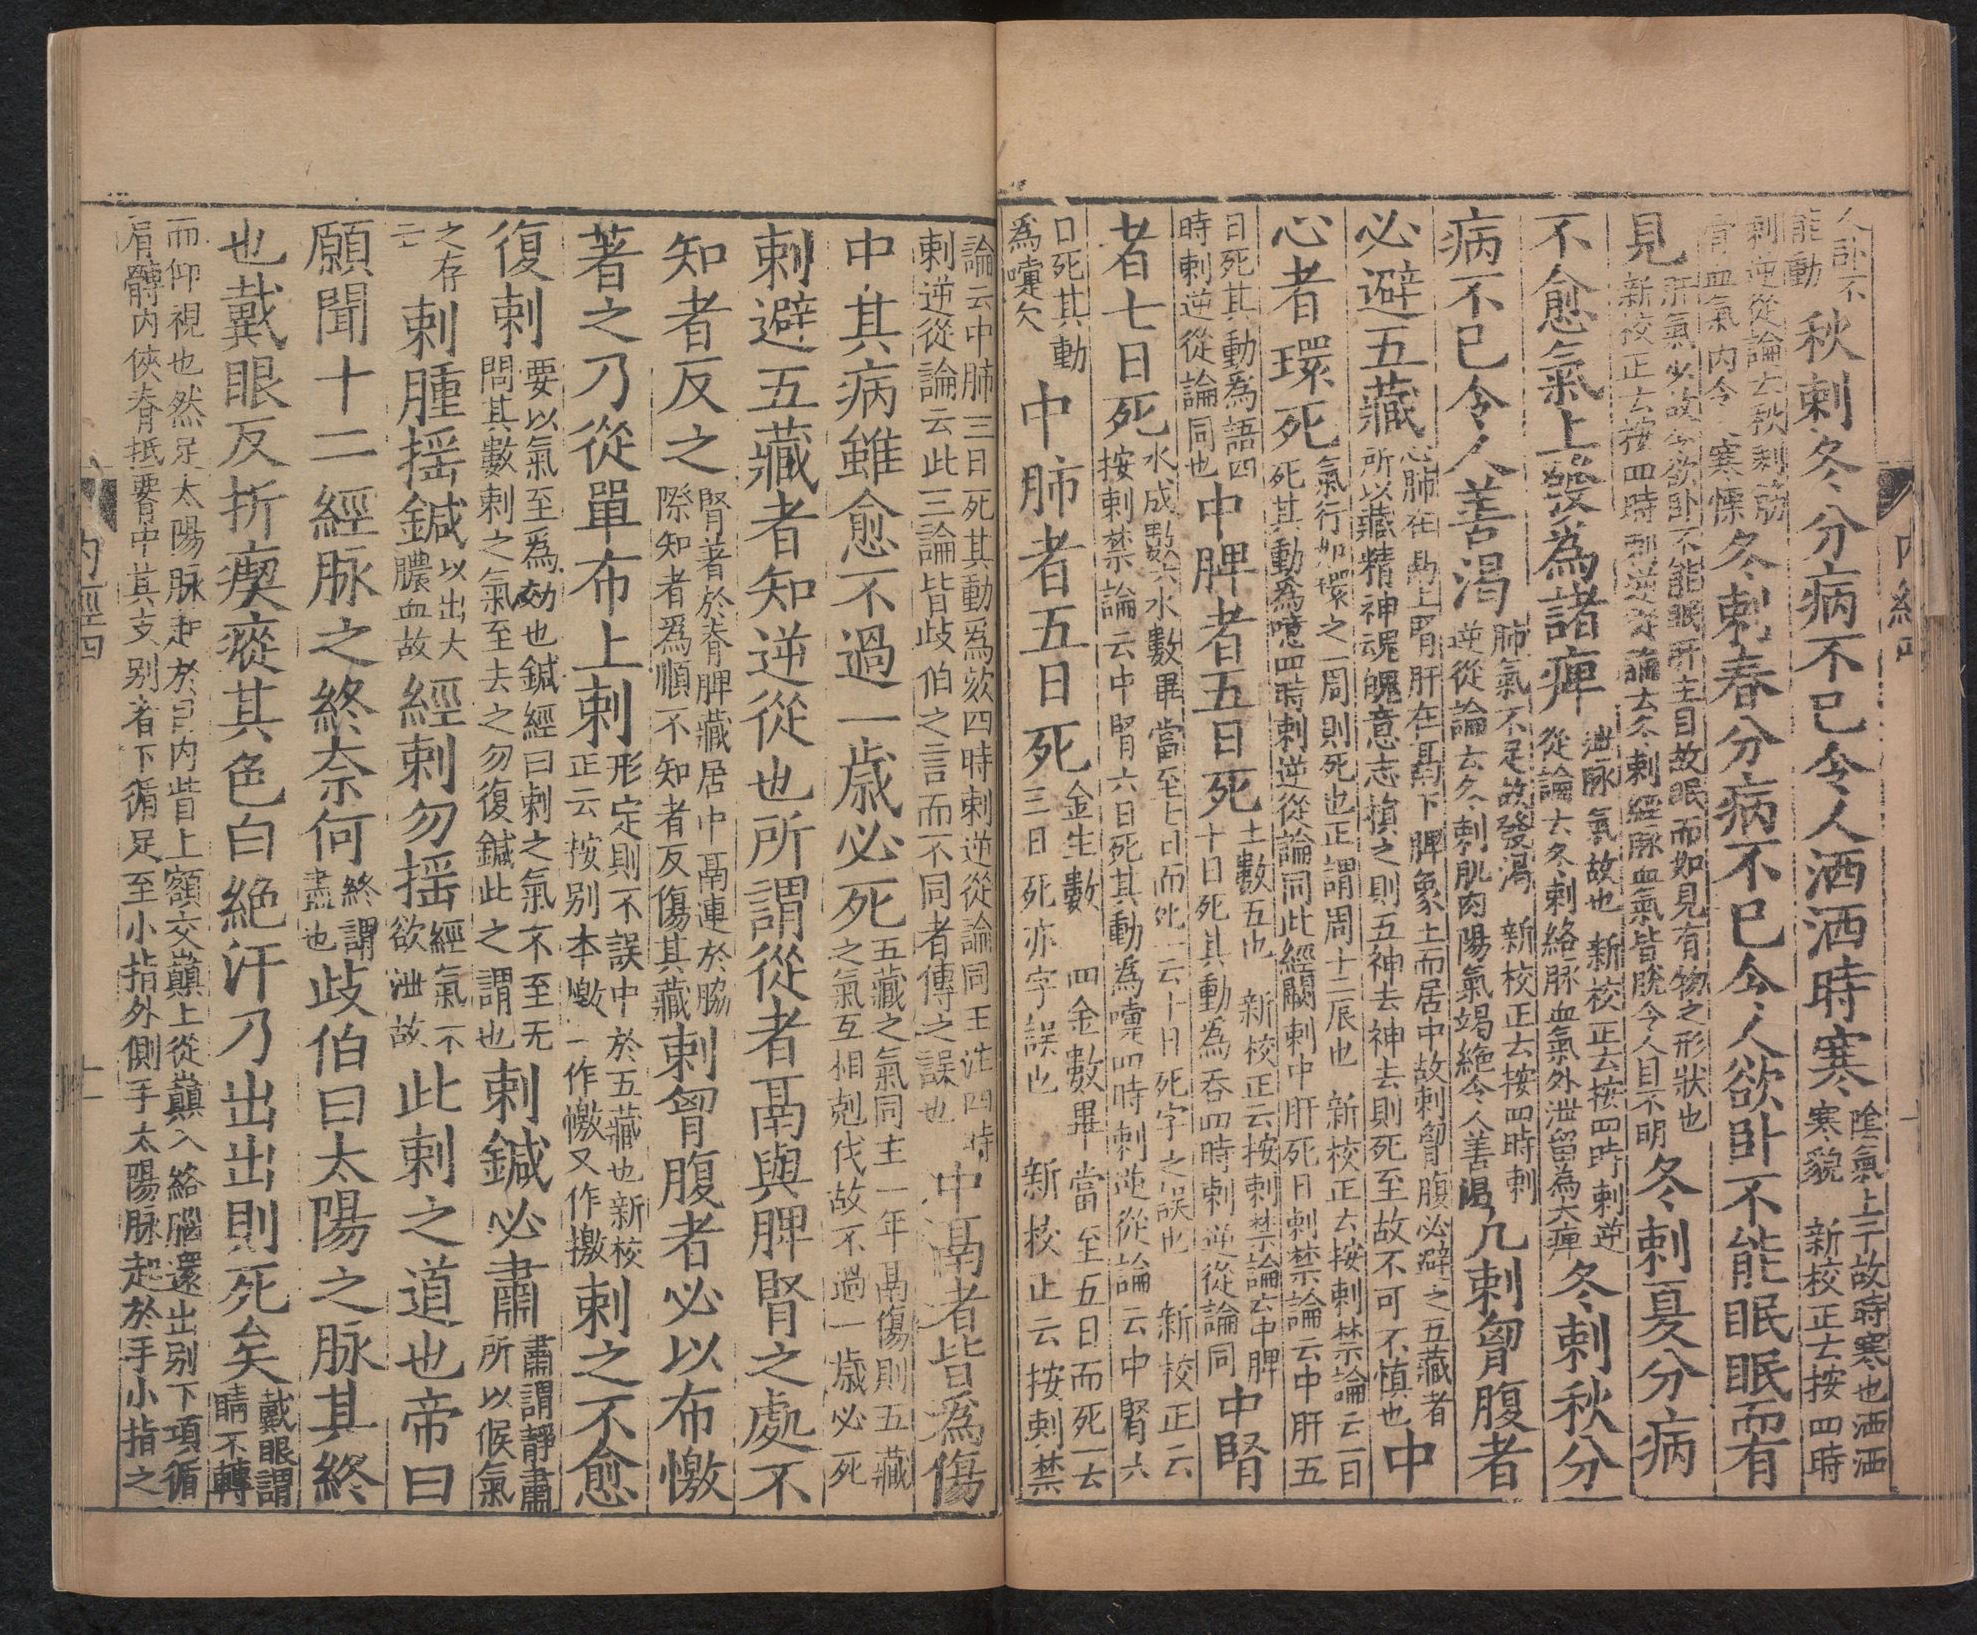 不能動
秋刺冬分病不已令人洒洒時寒 陰氣上干故時寒也洒洒寒貌 新校正云按四時
刺逆從論云秋刺筋骨血氣內令人寒慄 冬刺春分病不已令人欲卧不能眠眠而有
見 肝氣少故令欲卧不能眠肝主目故眠而如見有物之形狀也 新校正云按四時刺逆從論云冬刺經脈血氣皆脫令人目不明 冬刺夏分病
不愈氣上發為諸痺 泄脈氣故也 新校正云按四時刺逆從論云冬刺絡脈血氣外泄留為大痺 冬刺秋分
病不已令人善渴 肺氣不足故發渴 新校正云按四時刺逆從論云冬刺肌肉陽氣竭絶令人善渴 凡刺胷腹者
必避五藏 心肺在鬲上腎肝在鬲下脾象土而居中故刺胷腹必避之五藏者所以藏精神魂魄意志損之則五神去神去則死至故不可不慎也 中
心者環死 氣行如環之一周則死也正謂周十二辰也 新校正云按刺禁論云一日死其動為噫四時刺逆從論同此經闕刺中肝死日刺禁論云中肝五
日死其動為語四時刺逆從論同也 中脾者五日死 土數五也 新校正云按刺禁論云中脾十日死其動為吞四時刺逆從論同 中腎
者七日死 水成數六水數畢當至七日而死一云十日死字之誤也 新校正云按刺禁論云中腎六日死其動為嚏四時刺逆從論云中腎六
日死其動為嚏欠 中肺者五日死 金生數四金數畢當至五日而死一云三日死亦字誤也 新校正云按刺禁
論云中肺三日死其動為欬四時刺逆從論同王注四時刺逆從論云此三論皆歧伯之言而不同者傳之誤也 中鬲者皆為傷
中其病雖愈不過一歳必死 五藏之氣同主一年鬲傷則五藏之氣互相剋伐故不過一歳必死
刺避五藏者知逆從也所謂從者鬲與脾腎之處不
知者反之 腎著於脊脾藏居中鬲連於脇際知者為順不知者反傷其藏 刺胷腹者必以布憿
著之乃從單布上刺 形定則不誤中於五藏也新校正云按別本憿一作㦗又作撽 刺之不愈
復刺 要以氣至為効也鍼經曰刺之氣不至无問其數刺之氣至去之勿復鍼此之謂也 刺鍼必肅 肅謂靜肅所以候氣
之存云 刺腫揺鍼 以出大膿血故 經刺勿揺 經氣不欲泄故 此刺之道也帝曰
願聞十二經脈之終奈何 終謂盡也 歧伯曰太陽之脈其終
也戴眼反折瘈瘲其色白絶汗乃出出則死矣 戴眼謂睛不轉
而仰視也然足太陽脈起於目內眥上額交巔上從巔入絡腦還出別下項循肩髆內俠脊抵署中其支別者下循足至小指外側手太陽脈起於手小指之
內經四
十一
內經四